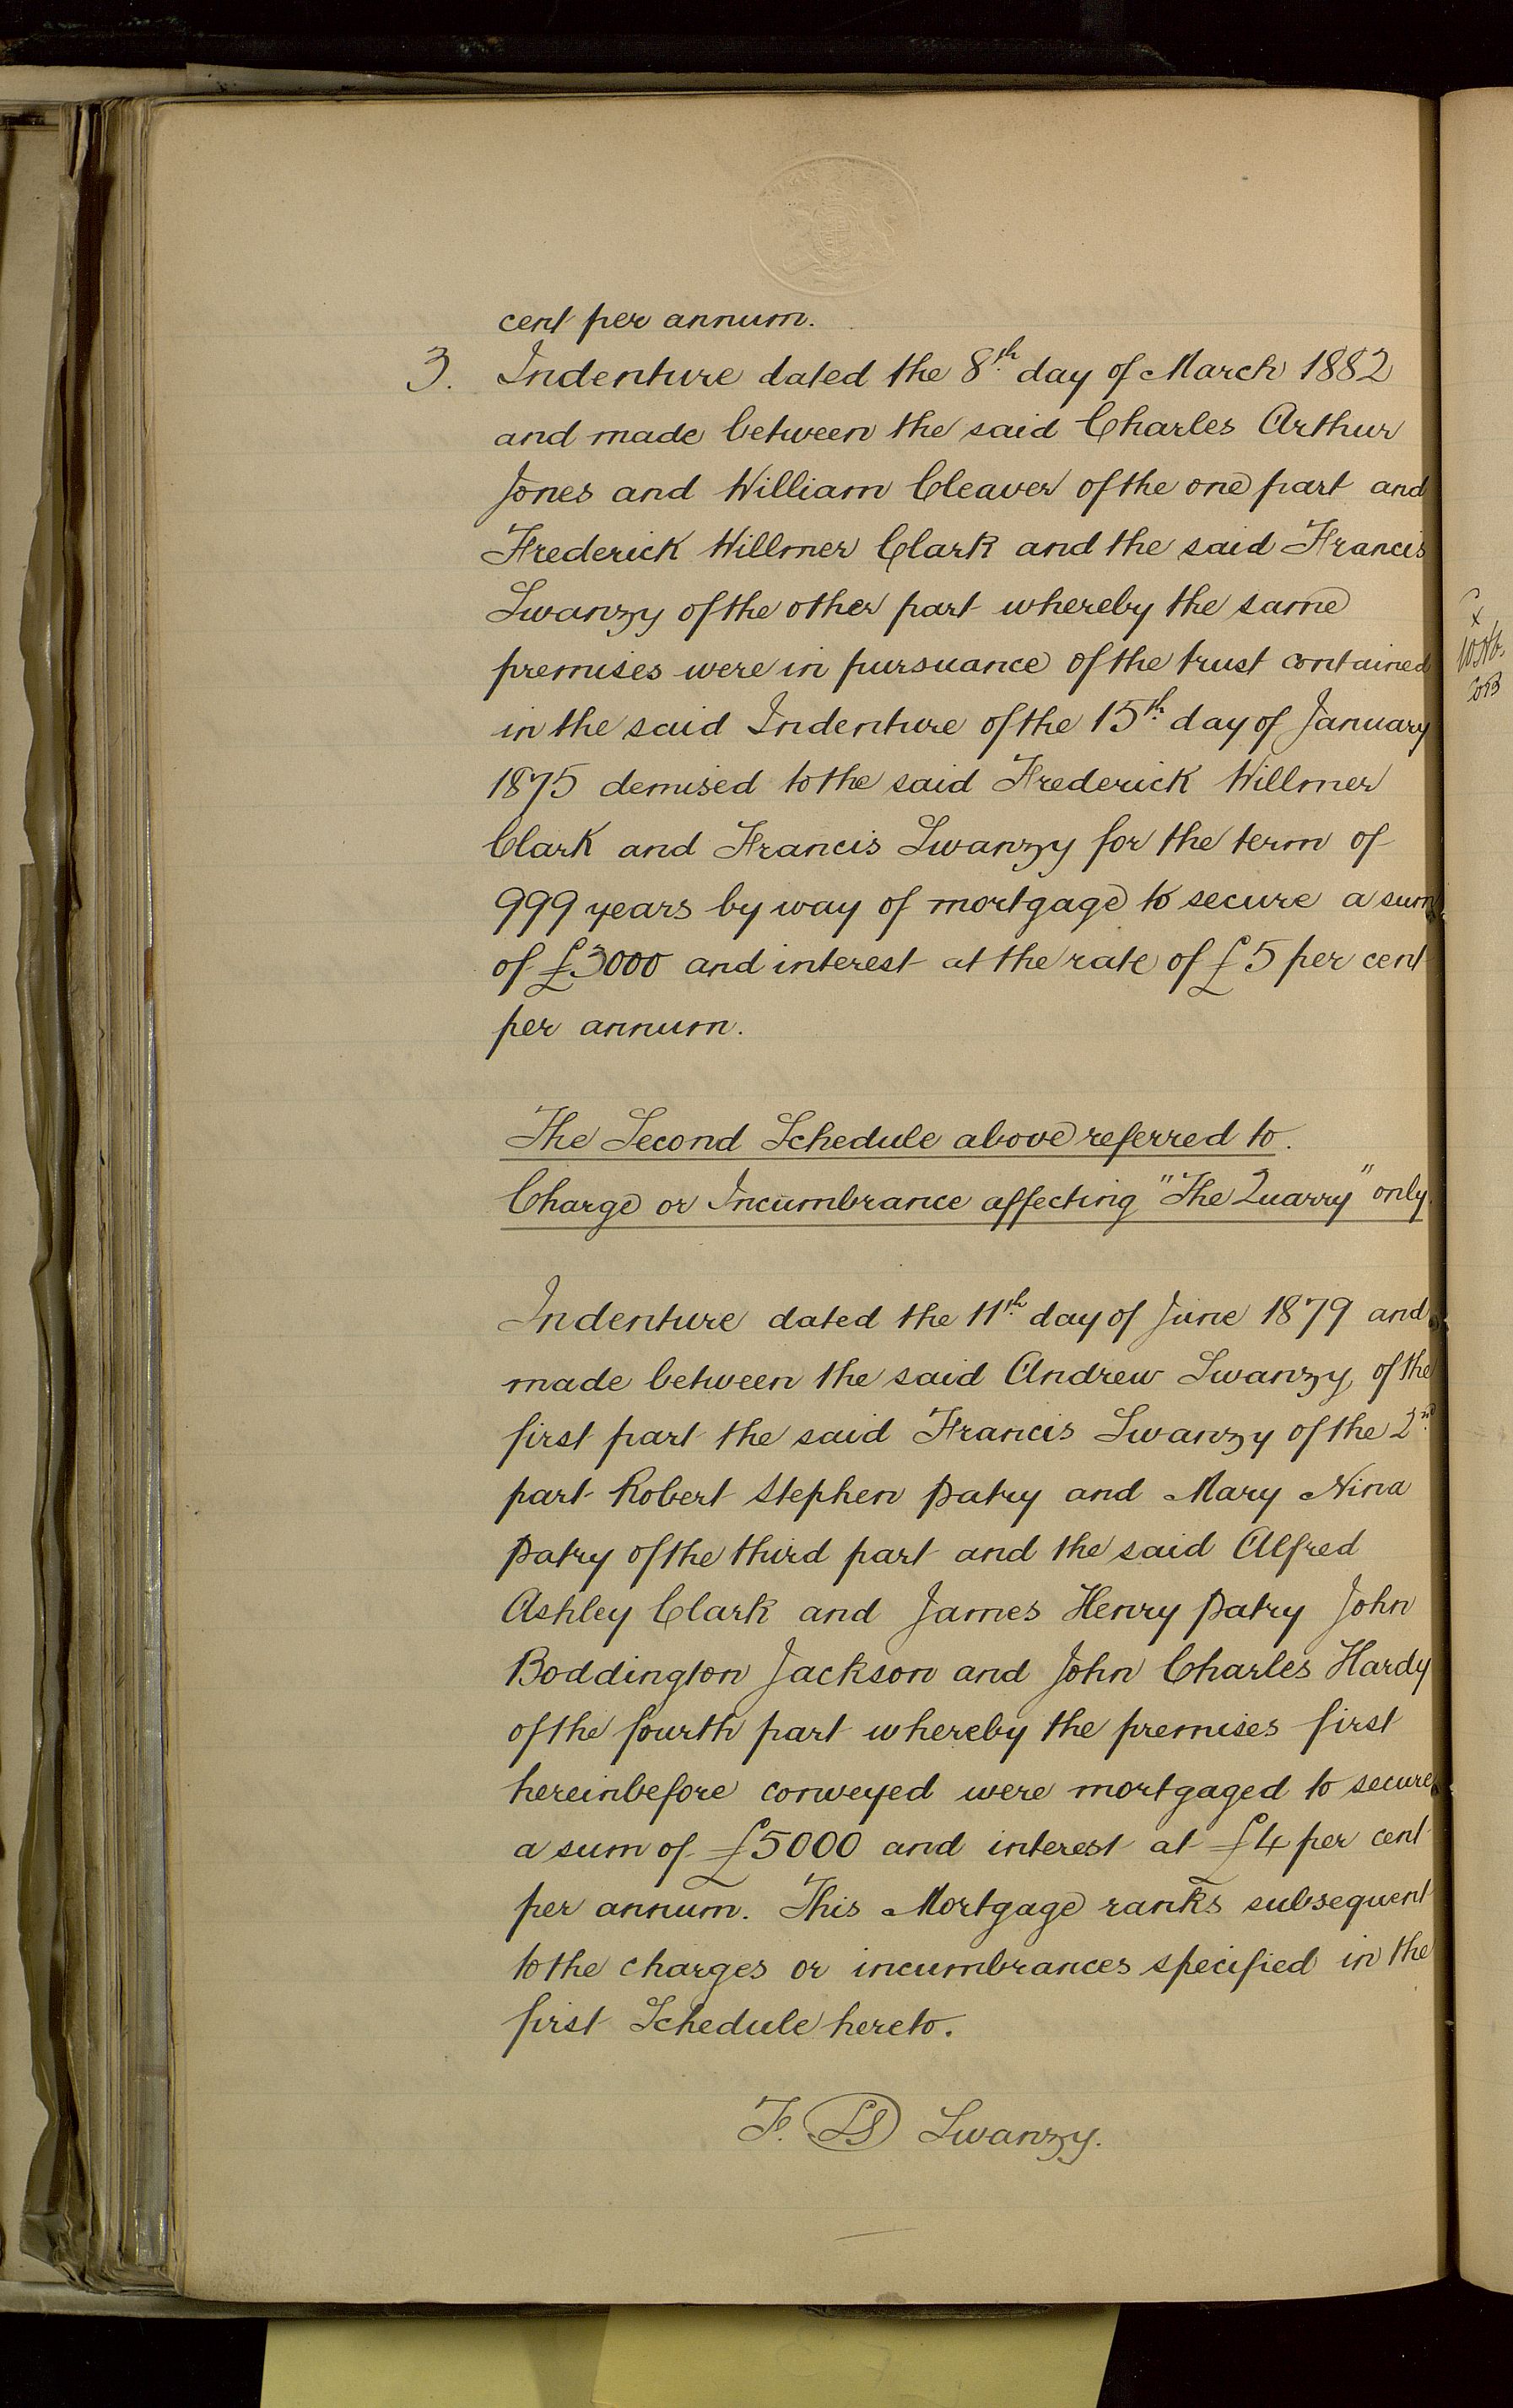 cent per annum.
3. Indenture dated the 8th day of March 1882
and made between the said Charles Arthur
Jones and William Cleaver of the one part and
Frederick Willmer Clark and the said Francis
Swanzy of the other part whereby the same
premises were in pursuance of the trust contained
in the said Indenture of the 15th day of January
1875 demised to the said Frederick Willmer
Clark and Francis Swanzy for the term of
999 years by way of mortgage to secure a sum
of £3000 and interest at the rate of £5 per cent
per annum.
The Second Schedule above referred to.
Charge or Incumbrance affecting "The Quarry" only.
Indenture dated the 11th day of June 1879 and
made between the said Andrew Swanzy of the
first part the said Francis Swanzy of the 2nd
part Robert Stephen Patry and Mary Nina
Patry of the third part and the said Alfred
Ashley Clark and James Henry Patry John
Boddington Jackson and John Charles Hardy
of the fourth part whereby the premises first
hereinbefore conveyed were mortgaged to secure
a sum of £5000 and interest at £4 per cent
per annum. This Mortgage ranks subsequent
to the charges or incumbrances specified in the
first Schedule hereto.
F. LS Swanzy.